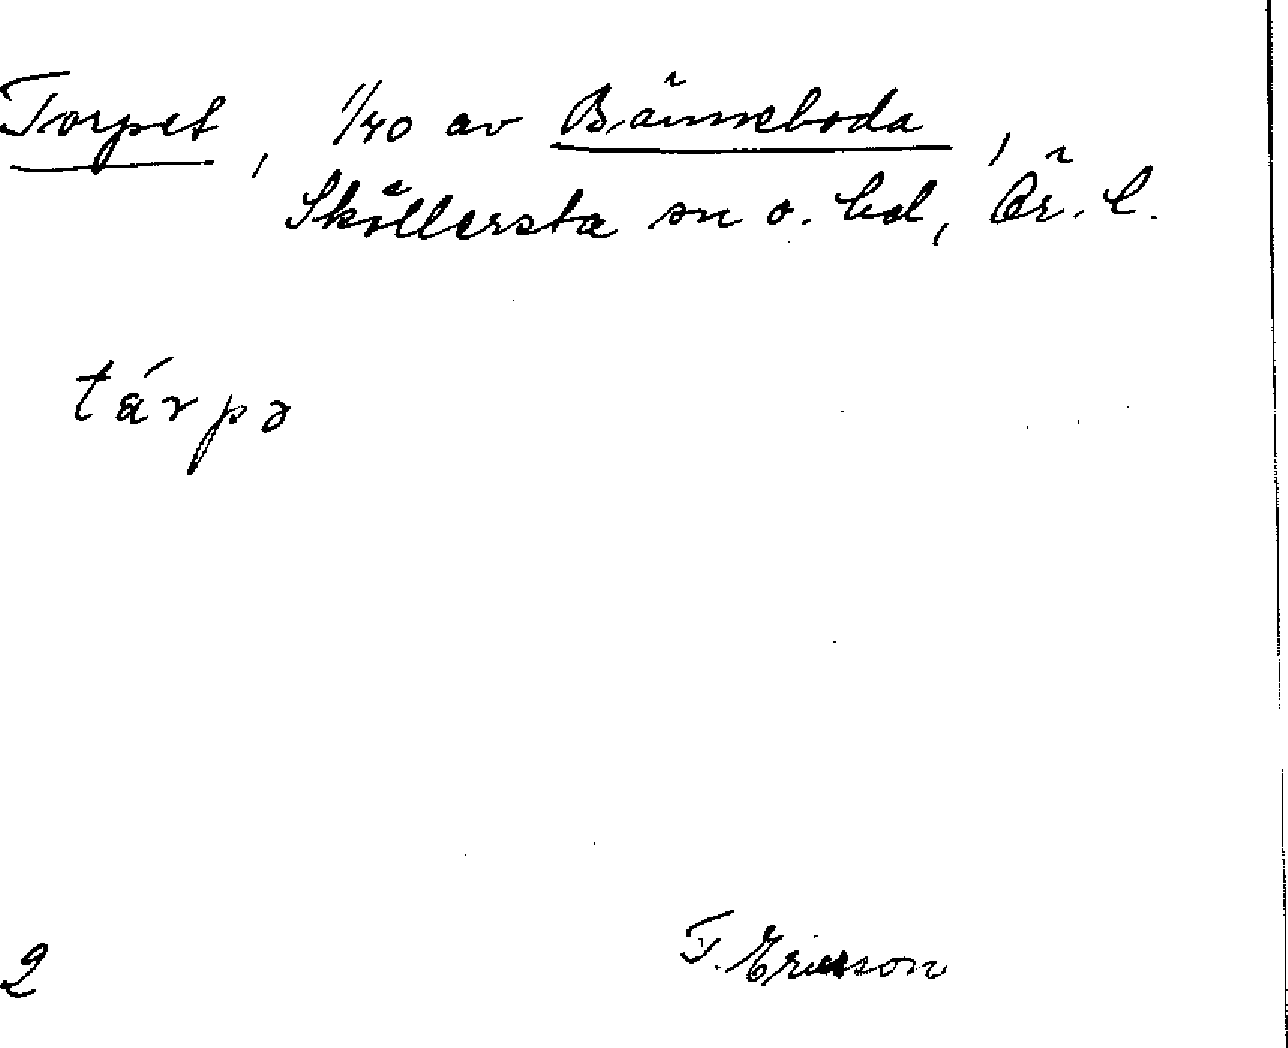 Torpet, 1/40 av Bänneboda,
Sköllersta sn o. hd, Ör. l.
tárpə
2
F. Ericsson